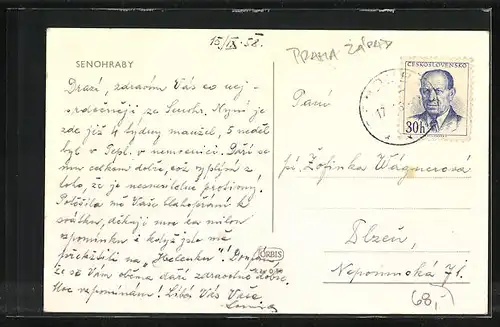 15/IX. 58.
PRAHA - ZÁPAD
SENOHRABY
ČESKOSLOVENSKO
30h
17
Drazí, zdravím Vás co nej-
srdečněji ze Senohr. Nyní je
zde již 4 týdny manžel, 5 neděl
byl v Tepl. v nemocnici. Daří se
mu celkem dobře, což vyplývá z
toho, že je nesnesitelně protivný!
Potěšila mě Vaše blahopřání k
svátku, děkuji moc za milou
vzpomínku i když jste mě
překřtili na „Helenku"! Doufám,
že se Vám oběma daří zdravotně dobře.
Moc vzpomínám! Líbá Vás Vaše
ORBIS
Paní
pí Žofinka Wágnerová
Plzeň,
Nepomucká 71.
68,-